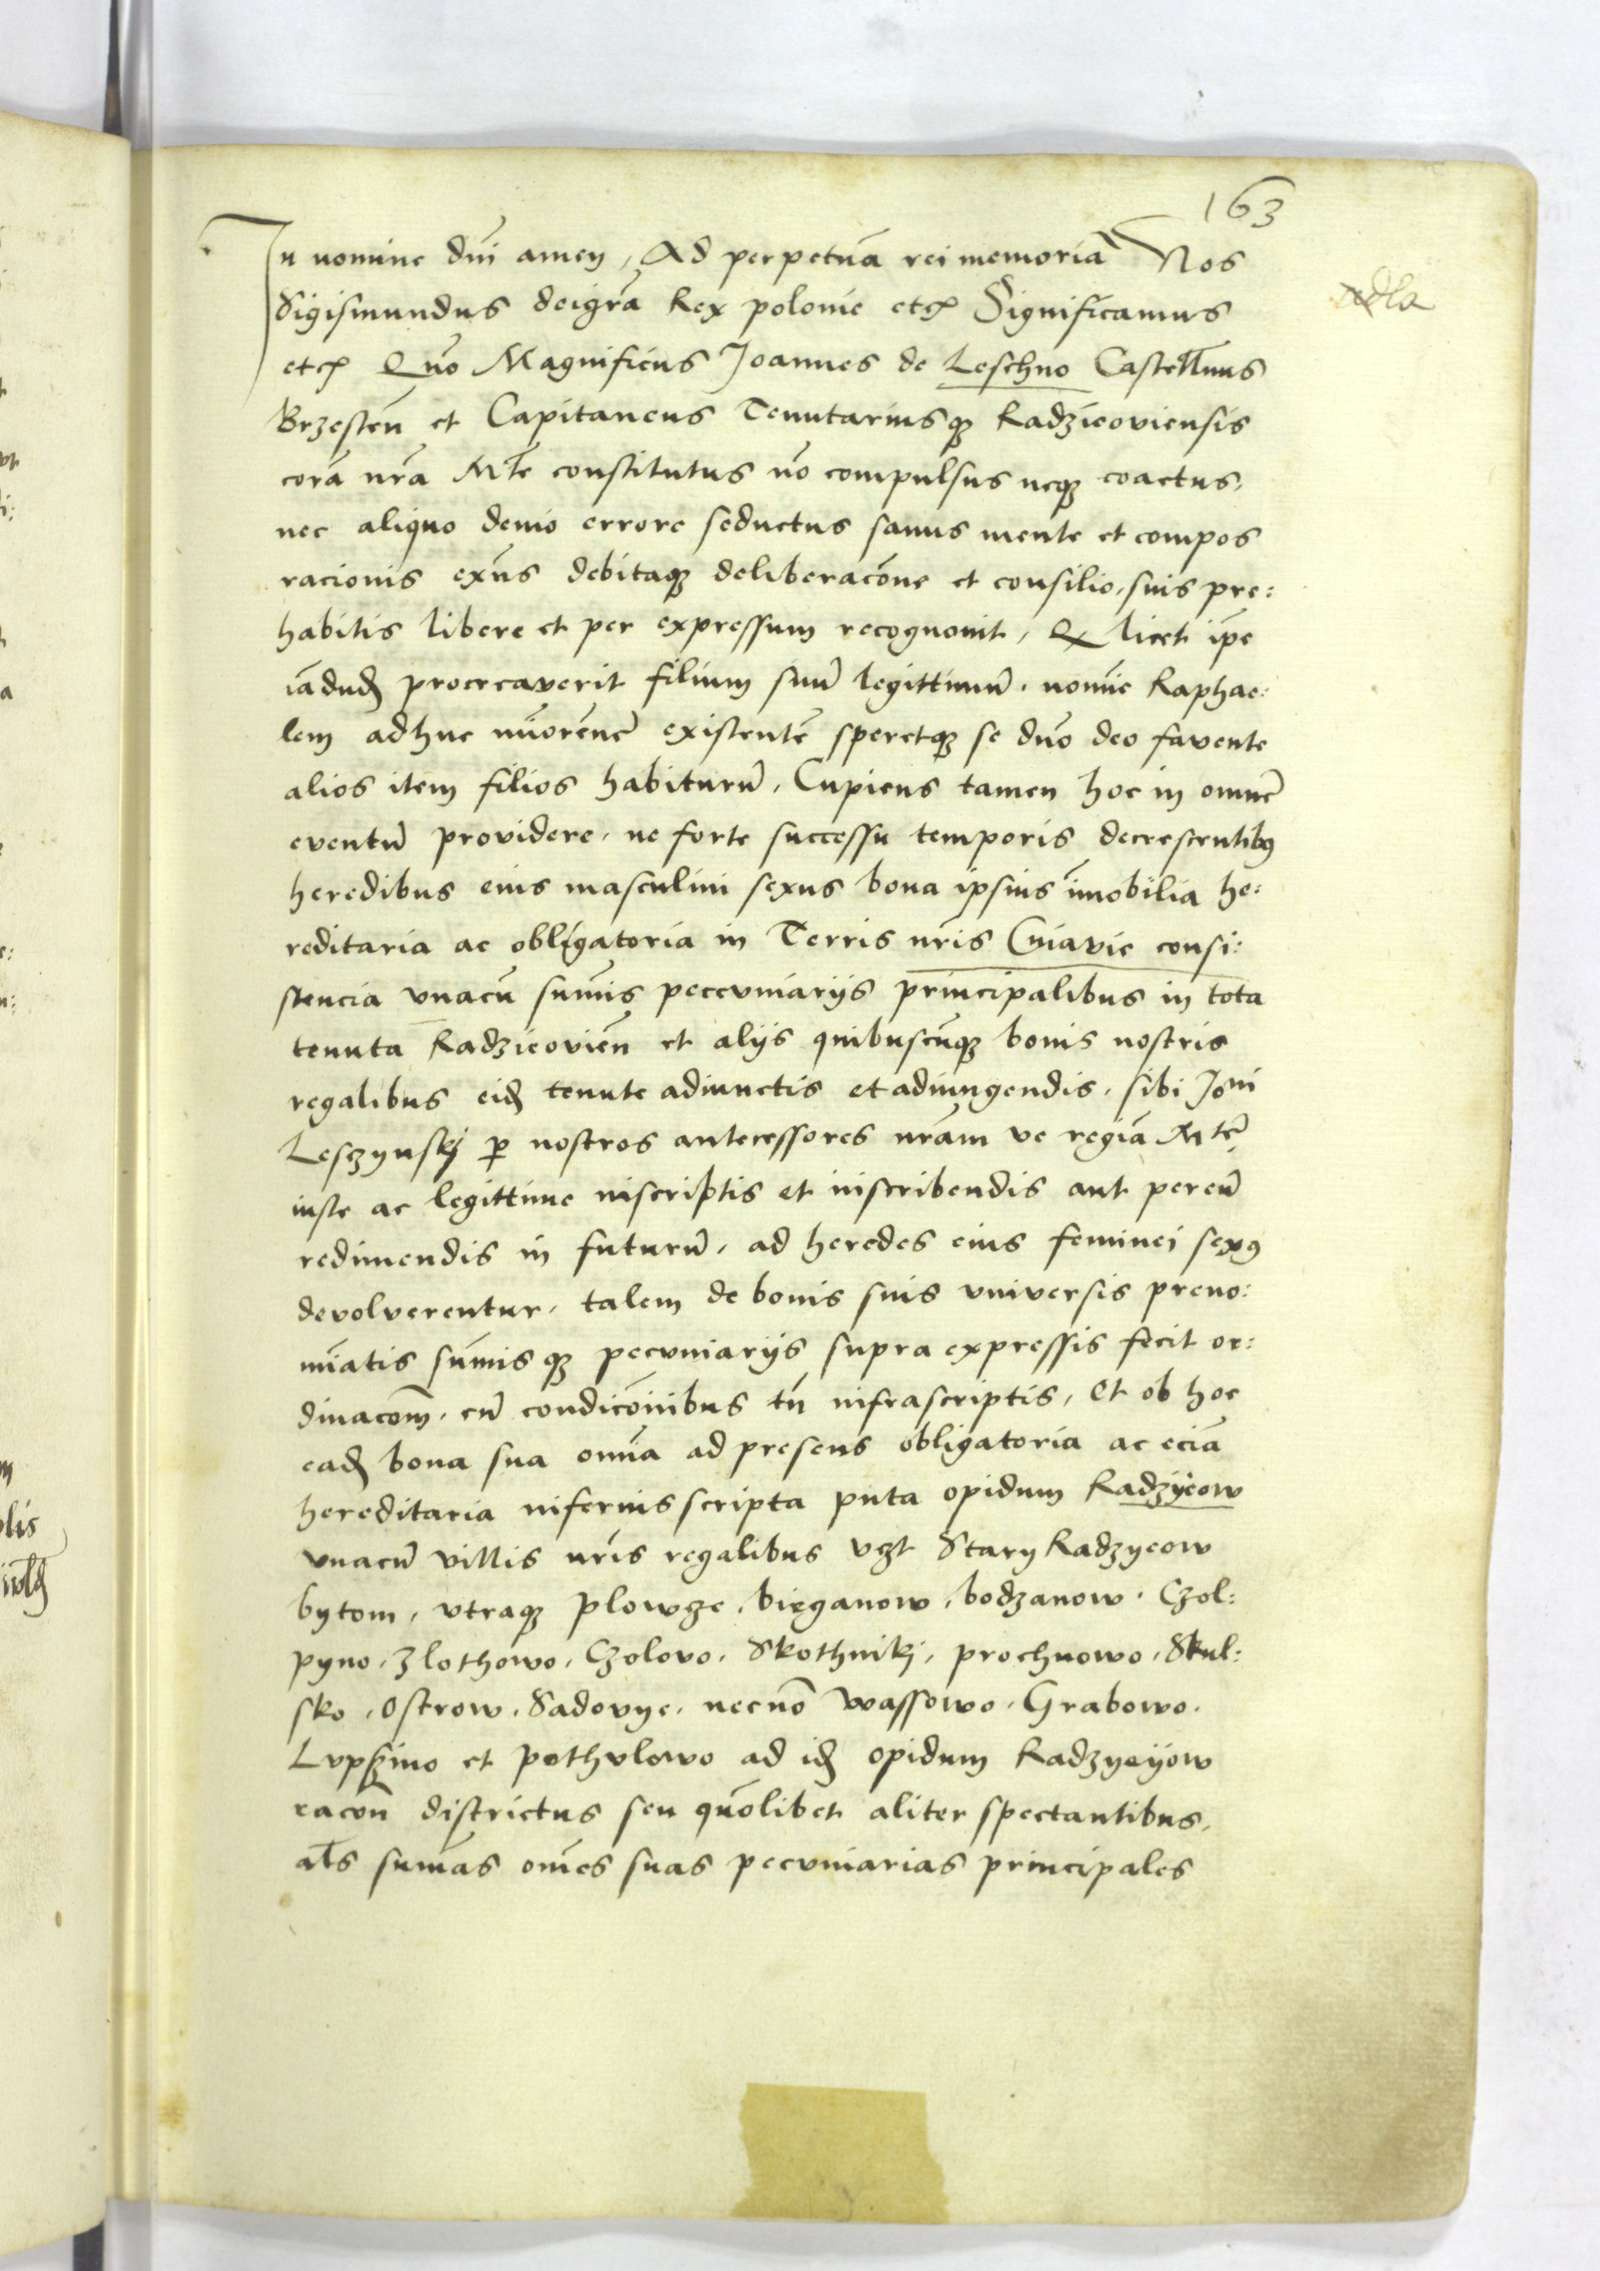 163
In nomine dni amen, Ad perpetuā rei memoriā Nos
Sigismundus deigrā Rex polonie etc̄ Significamus
etc̄ Quō Magnificus Joannes de Leschno Castellnus
Brzesteñ et Capitaneus Tenutariusq̨ Radzieoviensis
corā nrā Mte constitutus nō compulsus neq̨ coactus,
nec aliquo devio errore seductus sanus mente et compos
racionis exns debitaq̨ deliberacōne et consilio, suis pre:
habitis libere et per expressum recognovit, Q licet ipe
iādud̨ procreaverit filium suū legittimū, nomīe Raphae:
lem adhuc mīorēnē existentē speretq̨ se duō deo favente
alios item filios habiturū, Cupiens tamen hoc in omnē
eventū providere, ne forte successu temporis decrescentibꝰ
heredibus eius masculini sexus bona ipsius īmobilia he:
reditaria ac obligatoria in Terris nris Cuiavie consi:
stencia vnacū sumīs peccuniarÿs principalibus in tota
tenuta Radzieovieñ et alÿs quibuscūq̨ bonis nostris
regalibus eid̨ tenute adiunctis et adiungendis, sibi Joni
Leszynskj p̱ nostros antecessores nrām ve regiā Mtē
iuste ac legittime inscriptis et inscribendis aut pereū
redimendis in futurū, ad heredes eius feminei sexꝰ
devolverentur, talem de bonis suis vniversis preno:
mīatis sūmisq̨ pecuniarÿs supra expressis fecit or:
dinacom̄, cū condicōnibus tñ infrascriptis, Et ob hoc
ead̨ bona sua omīa ad presens obligatoria ac eciā
hereditaria inferius scripta puta opidum Radzÿeow
vnacū villis nrīs regalibus vꝫt Stary Radzyeow
bytom, vtraq̨ plowꝫe, bieganow, bodzanow, Czol:
pyno, Zlothowo, Czolovo, Skothnikj, prochnowo, Skul:
sko, Ostrow, Sadovye, necnō wassowo, Grabowo,
Lvpszino et pothvlowo ad id̨ opidum Radzyeÿow
racoñ districtus seu quōlibet aliter spectantibus,
als sumās omēs suas pecuniarias principales